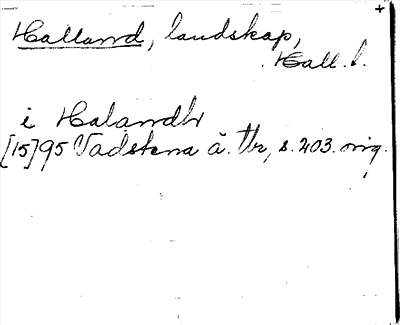 Halland, landskap,
Hall. l.
i Halandh
[15]95 Vadstena ä. Tb, s. 203. orig.